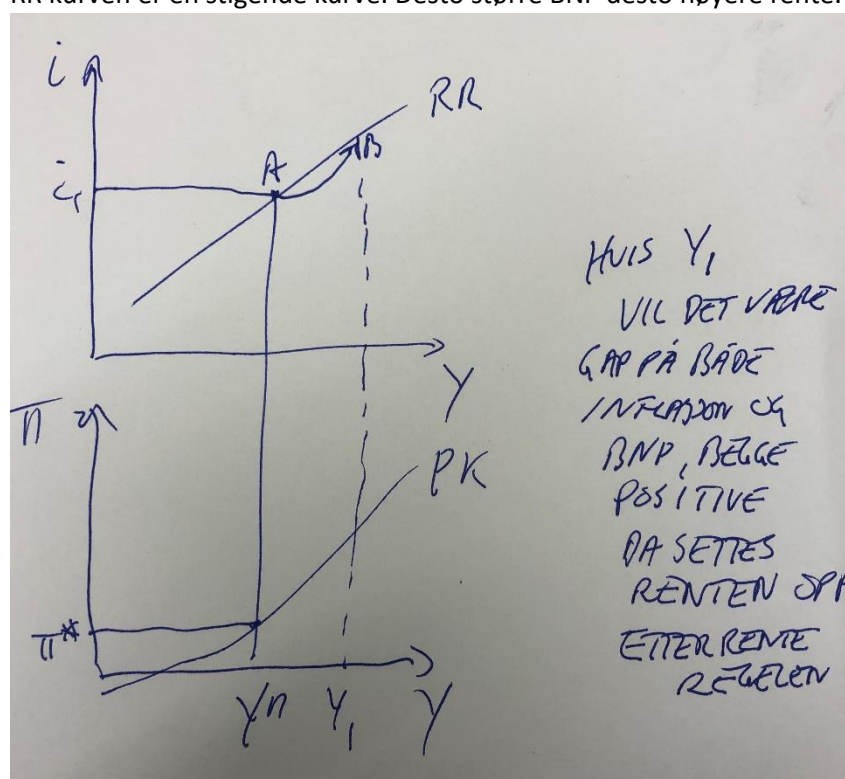 RR kurven er en stigende kurve. Desto større BNP desto høyere rente.
i
RR
A
B
i₁
Y
π
PK
π*
Yn
Y₁
Y
HVIS Y₁
VIL DET VÆRE
GAP PÅ BÅDE
INFLASJON OG
BNP, BEGGE
POSITIVE
DA SETTES
RENTEN OPP
ETTER RENTE
REGELEN